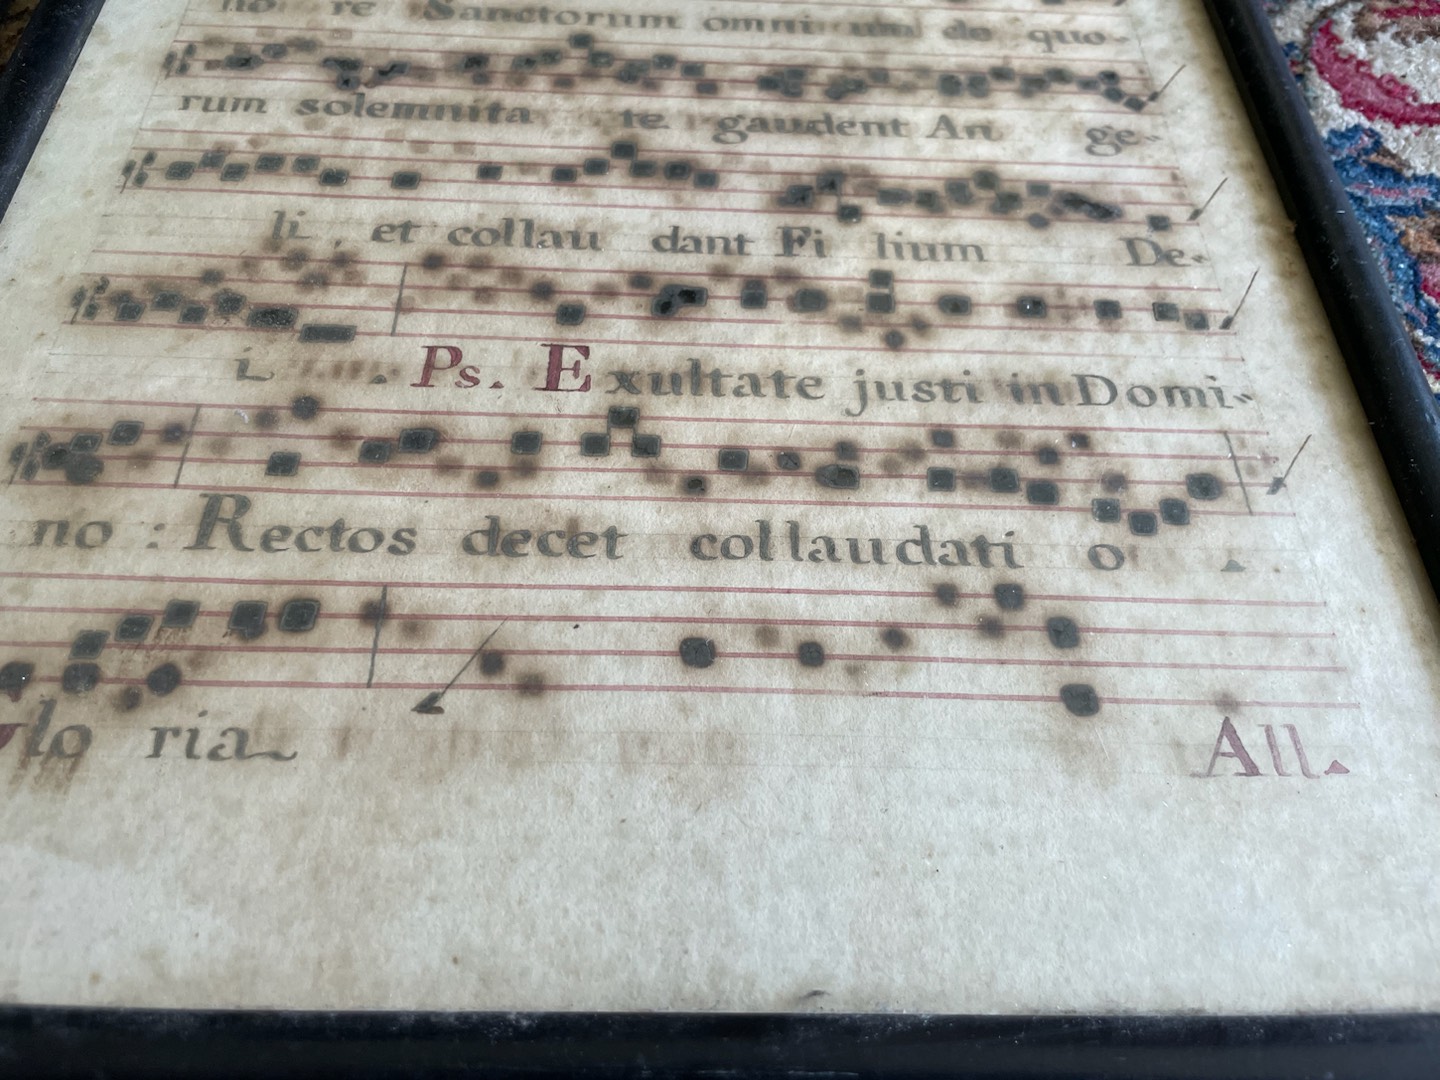 no re Sanctorum omni um de quo-
rum solemnita te gaudent An ge-
li, et collau dant Fi lium De-
i. Ps. Exultate justi in Domi-
no: Rectos decet collaudati o.
Glo ria All.